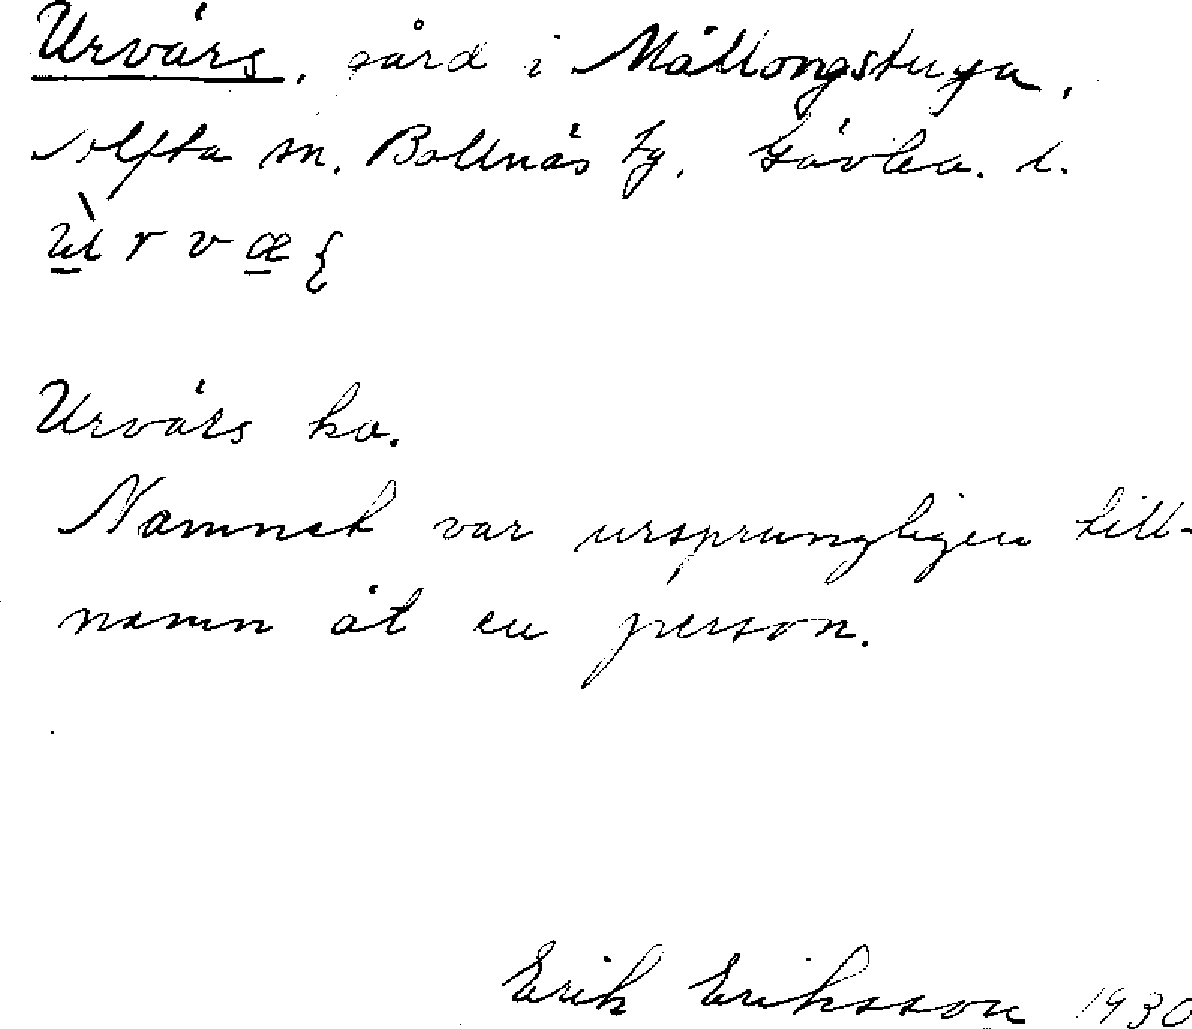 Urvärs, gård i Mållongstuga,
Arfta sn. Bollnäs tg. Gävleb. l.
Urvärs ka.
Namnet var ursprungligen till-
namn åt en person.
Erik Eriksson 1930